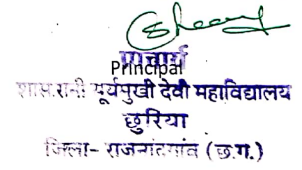 प्राचार्य
Principal
शास.रानी सूर्यमुखी देवी महाविद्यालय
छुरिया
जिला- राजनांदगांव (छ.ग.)